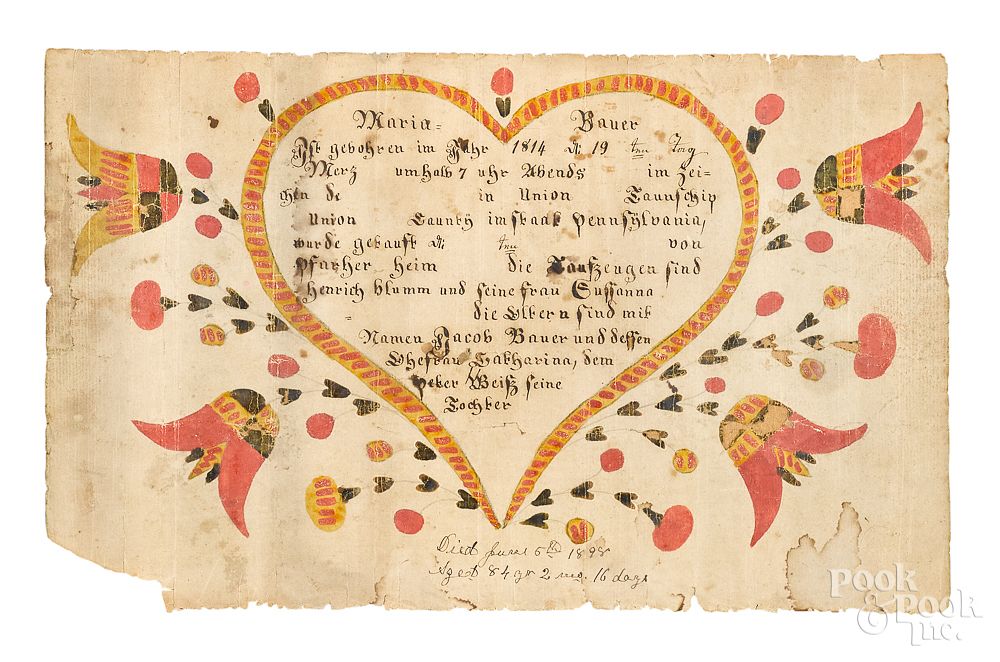 Maria= Bauer
Ist gebohren im Jahr 1814 d 19 ten Tag
Merz um halb 7 uhr Abends im Zei=
chen de in Union Taunschip
Union Caunty im staat Pennsylvania,
wurde getauft d ten von
Pfarher Heim die Taufzeugen sind
Henrich blumm und seine frau Sussanna
= die Eltern sind mit
Namen Jacob Bauer und dessen
Ehefrau Catharina, dem
peter Weiß seine
Tochter
Died June 5th 1898
Aged 84 yr 2 mo. 16 days
POOK
& POOK
Inc.